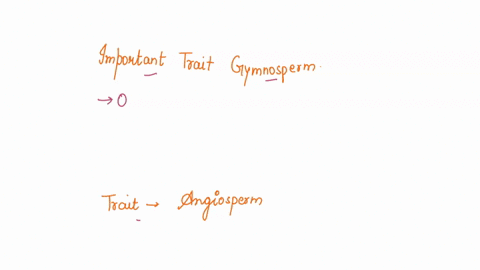 Important Trait Gymnosperm.
→ O
Trait → Angiosperm